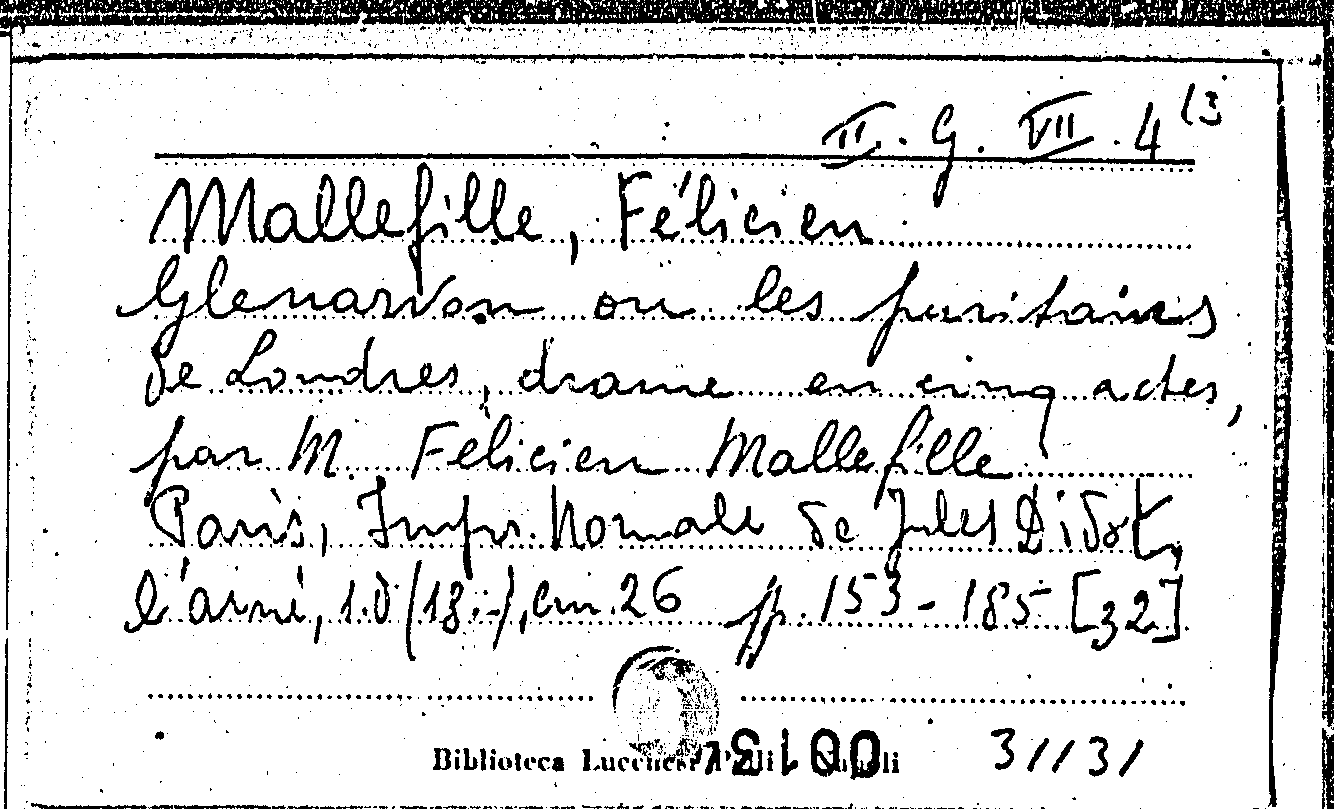 II. G. VII. 4 (3
Mallefille, Félicien
Glenarvon ou les puritains
de Londres, drame en cinq actes,
par M. Félicien Mallefille
Paris, Impr. Normale de Jules Didot,
l'ainé, s.d (18..), cm. 26 pp. 153-185 [32]
Biblioteca Lucchesi Palli
31131